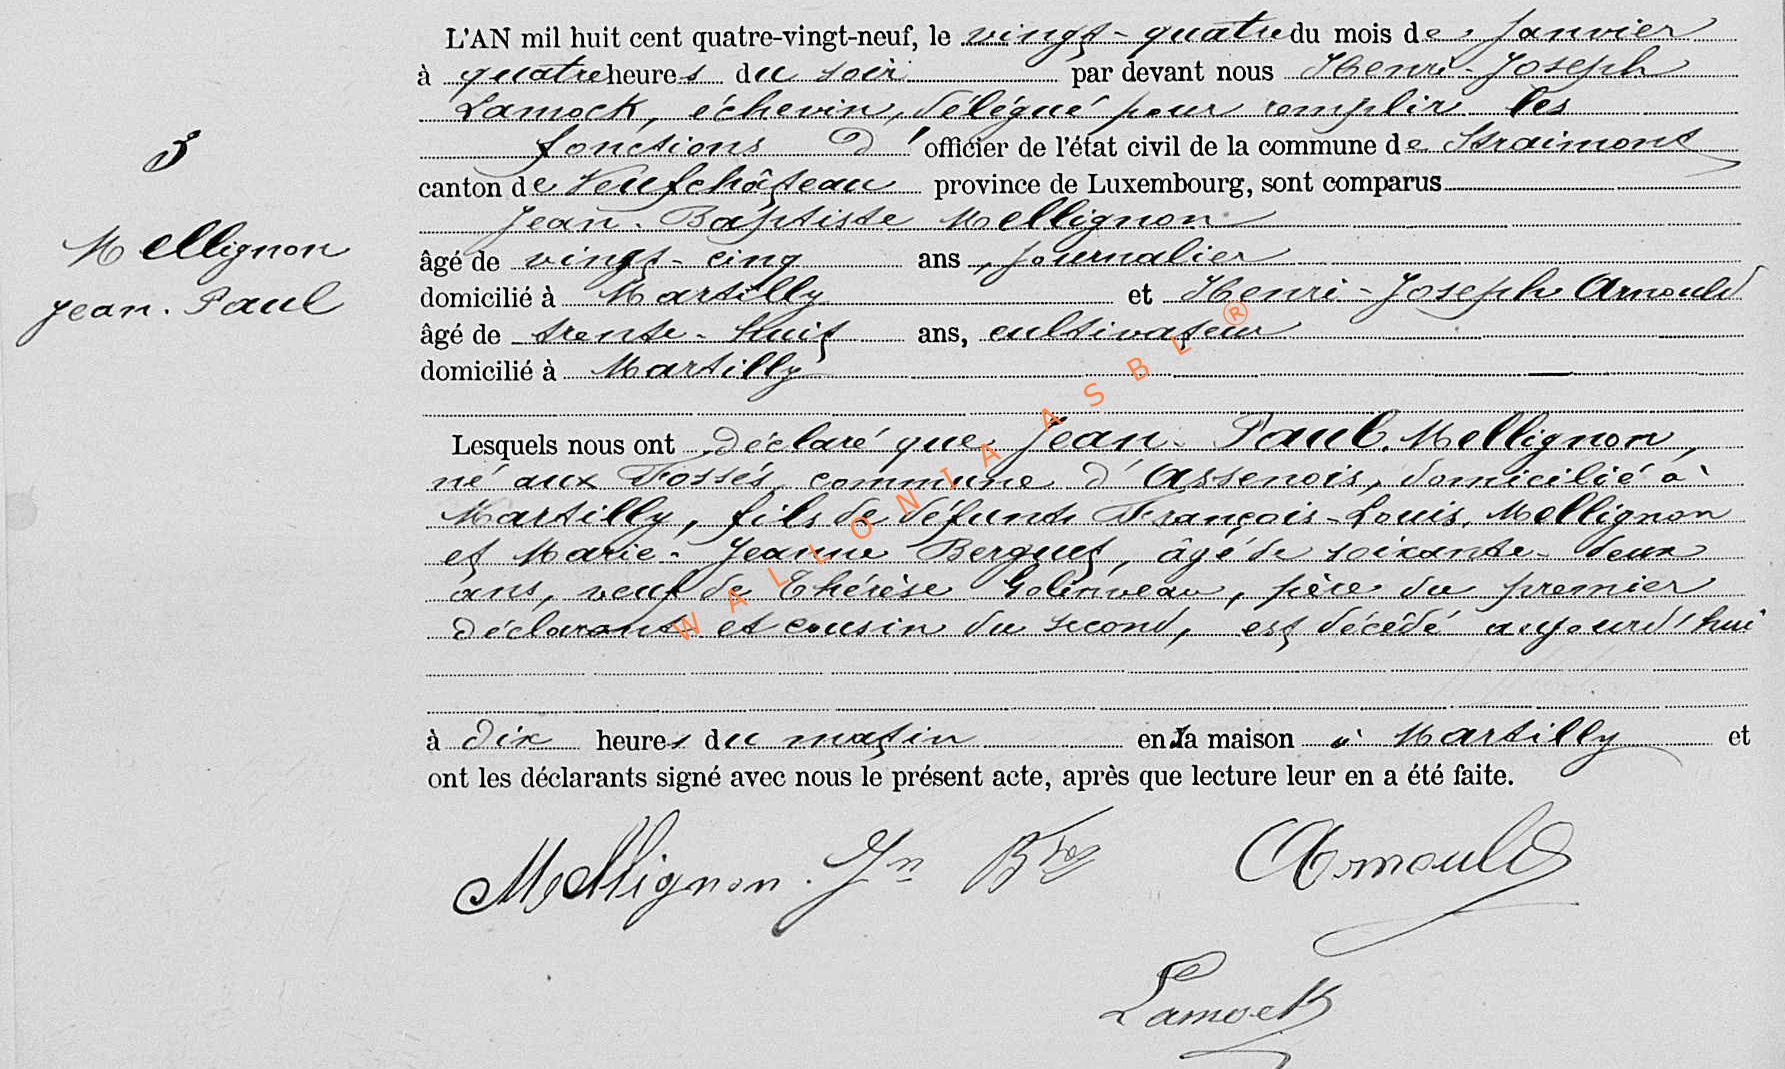 L'AN mil huit cent quatre-vingt-neuf, le vingt-quatre du mois de Janvier
à quatre heures du soir par devant nous Henri-Joseph
Lamock, échevin, délégué pour remplir les
fonctions d'officier de l'état civil de la commune de Straimont
canton de Neufchâteau province de Luxembourg, sont comparus
Jean-Baptiste Mellignon
âgé de vingt-cinq ans, journalier
domicilié à Martilly et Henri-Joseph Arnould
âgé de trente-huit ans, cultivateur
domicilié à Martilly
Lesquels nous ont déclaré que Jean-Paul Mellignon,
né aux Fossés, commune d'Assenois, domicilié à
Martilly, fils de défunts François-Louis Mellignon
et Marie-Jeanne Berguet, âgé de soixante-deux
ans, veuf de Thérèse Golinveau, père du premier
déclarant et cousin du second, est décédé aujourd'hui
à dix heures du matin en sa maison à Martilly et
ont les déclarants signé avec nous le présent acte, après que lecture leur en a été faite.
Mellignon Jn Bte Arnould
Lamock
3
Mellignon
Jean-Paul
WALLONIA ASBL ®